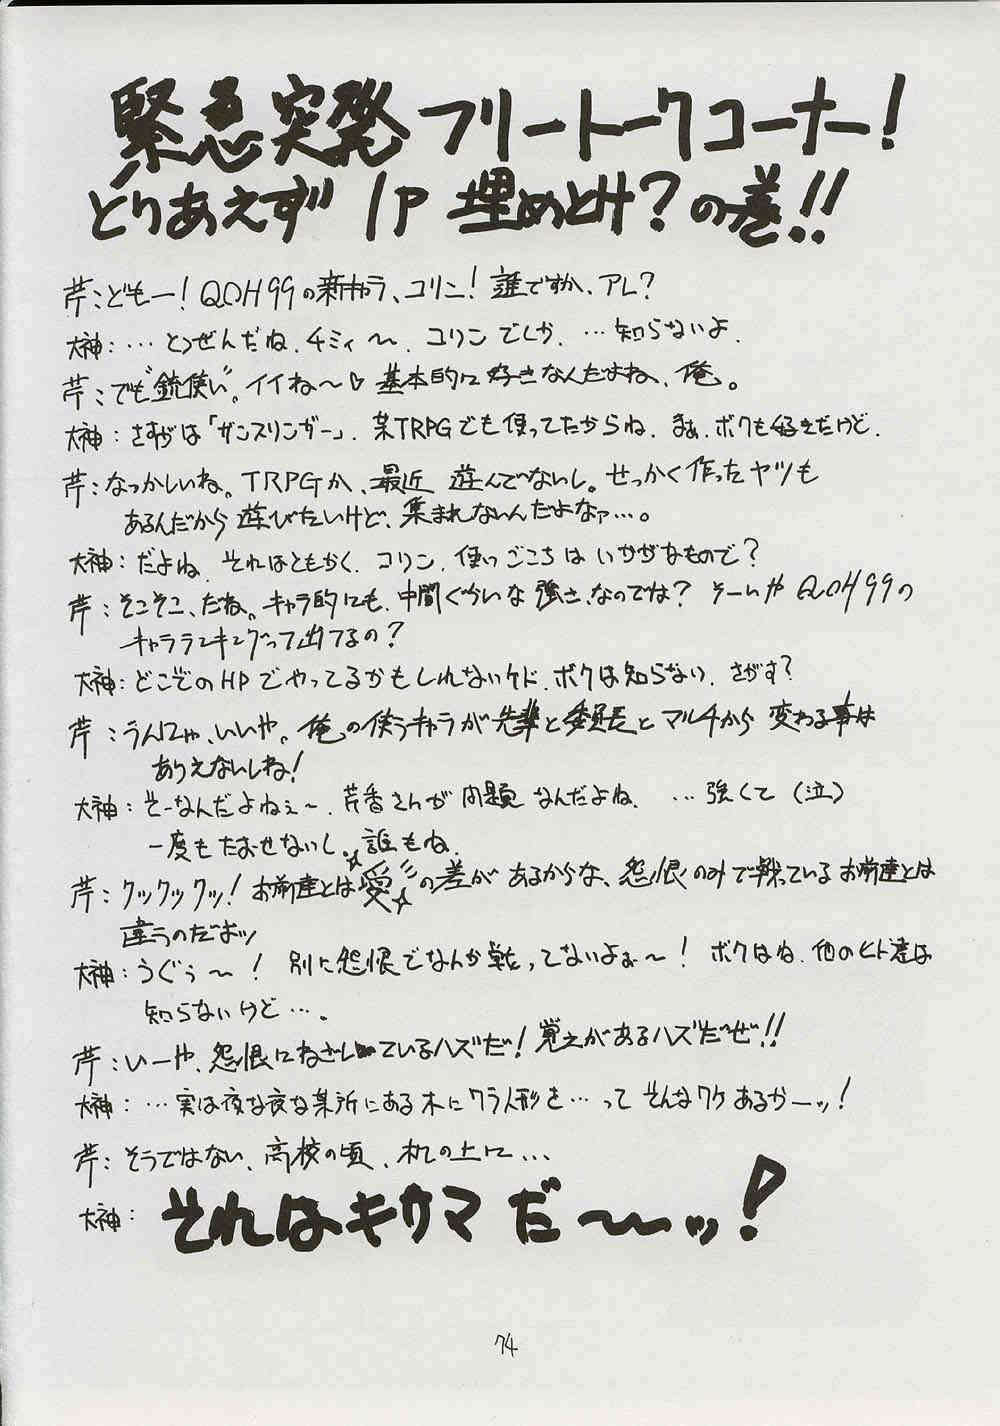 緊急突発フリートークコーナー!
とりあえず1P埋めとけ?の巻!!
芹:どもー!QOH99の新キャラ、コリン!誰ですか、アレ?
大神:…とつぜんだね、チミィ〜、コリンでしか、…知らないよ、
芹:でも"銃使い"。イイね〜♡基本的に好きなんだよね、俺。
大神:さすがは「ガンスリンガー」、某TRPGでも使ってたからね、まぁ、ボクも好きだけど、
芹:なつかしいね。TRPGか、最近遊んでないし。せっかく作ったヤツも
あるんだから遊びたいけど、集まれないんだよなァ…。
大神:だよね、それはともかく、コリン、使いごこちはいかがなもので?
芹:そこそこ、だね。キャラ的にも、中間ぐらいな強さ、なのでは?そーいやQOH99の
キャラランキングって出てるの?
大神:どこぞのHPでやってるかもしれないケド、ボクは知らない、さがす?
芹:うんにゃ、いいや。俺の使うキャラが先輩と委員長とマルチから変わる事は
ありえないしね!
大神:そーなんだよねぇ〜、芹香さんが問題なんだよね、…強くて(泣)
一度もたおせないし、誰もね、
芹:クックックッ!お前達とは☆愛☆の差があるからな、怨恨のみで戦っているお前達とは
違うのだよッ
大神:うぐぅ〜!別に怨恨でなんか戦ってないよぉ〜!ボクはね、他のヒト達は
知らないけど…。
芹:いーや、怨恨にねざしているハズだ!覚えがあるハズだぜ!!
大神:…実は夜な夜な某所にある木にワラ人形を…ってそんなワケあるかーッ!
芹:そうではない、高校の頃、机の上に…
大神:それはキサマだ〜〜ッ!
74